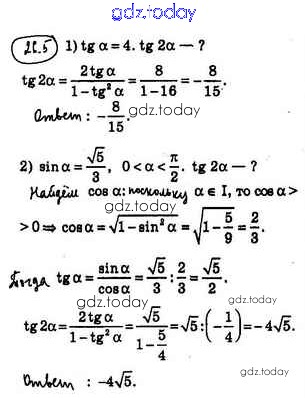 gdz.today
26.5 1) tg α = 4. tg 2α — ?
tg 2α = 2tg α / (1 − tg² α) = 8 / (1 − 16) = −8/15.
Ответ: −8/15. gdz.today
2) sin α = √5/3, 0 < α < π/2. tg 2α — ?
gdz.today
Найдём cos α: поскольку α ∈ I, то cos α >
> 0 ⇒ cos α = √(1 − sin² α) = √(1 − 5/9) = 2/3.
gdz.today
Тогда tg α = sin α / cos α = √5/3 : 2/3 = √5/2.
gdz.today
gdz.today
tg 2α = 2tg α / (1 − tg² α) = √5 / (1 − 5/4) = √5 : (−1/4) = −4√5.
Ответ: −4√5. gdz.today